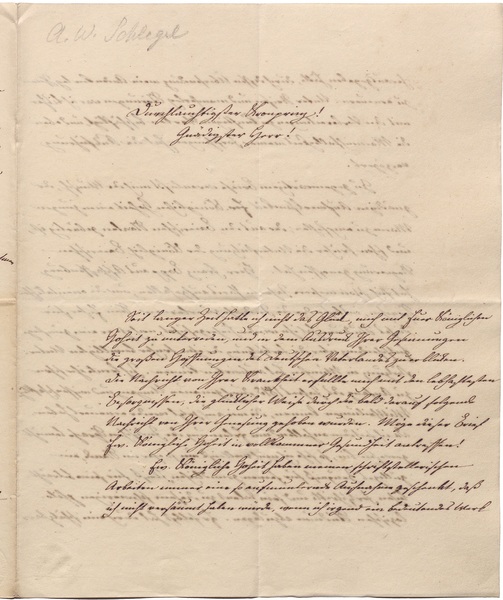 A. W. Schlegel
Durchlauchtigster Kronprinz!
Gnädigster Herr!
Seit langer Zeit hatte ich nicht das Glück, mich mit Euer Königlichen
Hoheit zu unterreden, und in dem Ausdruck Ihrer Gesinnungen
die großen Hoffnungen des deutschen Vaterlandes zu
Die Nachricht von Ihrer Krankheit erfüllte mich mit den lebhaftesten
Besorgnissen, die glücklicher Weise durch die bald darauf folgende
Nachricht von Ihrer Genesung gehoben wurden. Möge dieser Brief
Ew. Königliche Hoheit in vollkommner Gesundheit antreffen!
Ew. Königliche Hoheit haben meinen schriftstellerischen
Arbeiten immer eine so aufmunternde Aufnahme geschenkt, daß
ich nicht versäumt haben würde, wenn ich irgend ein bedeutendes Werk